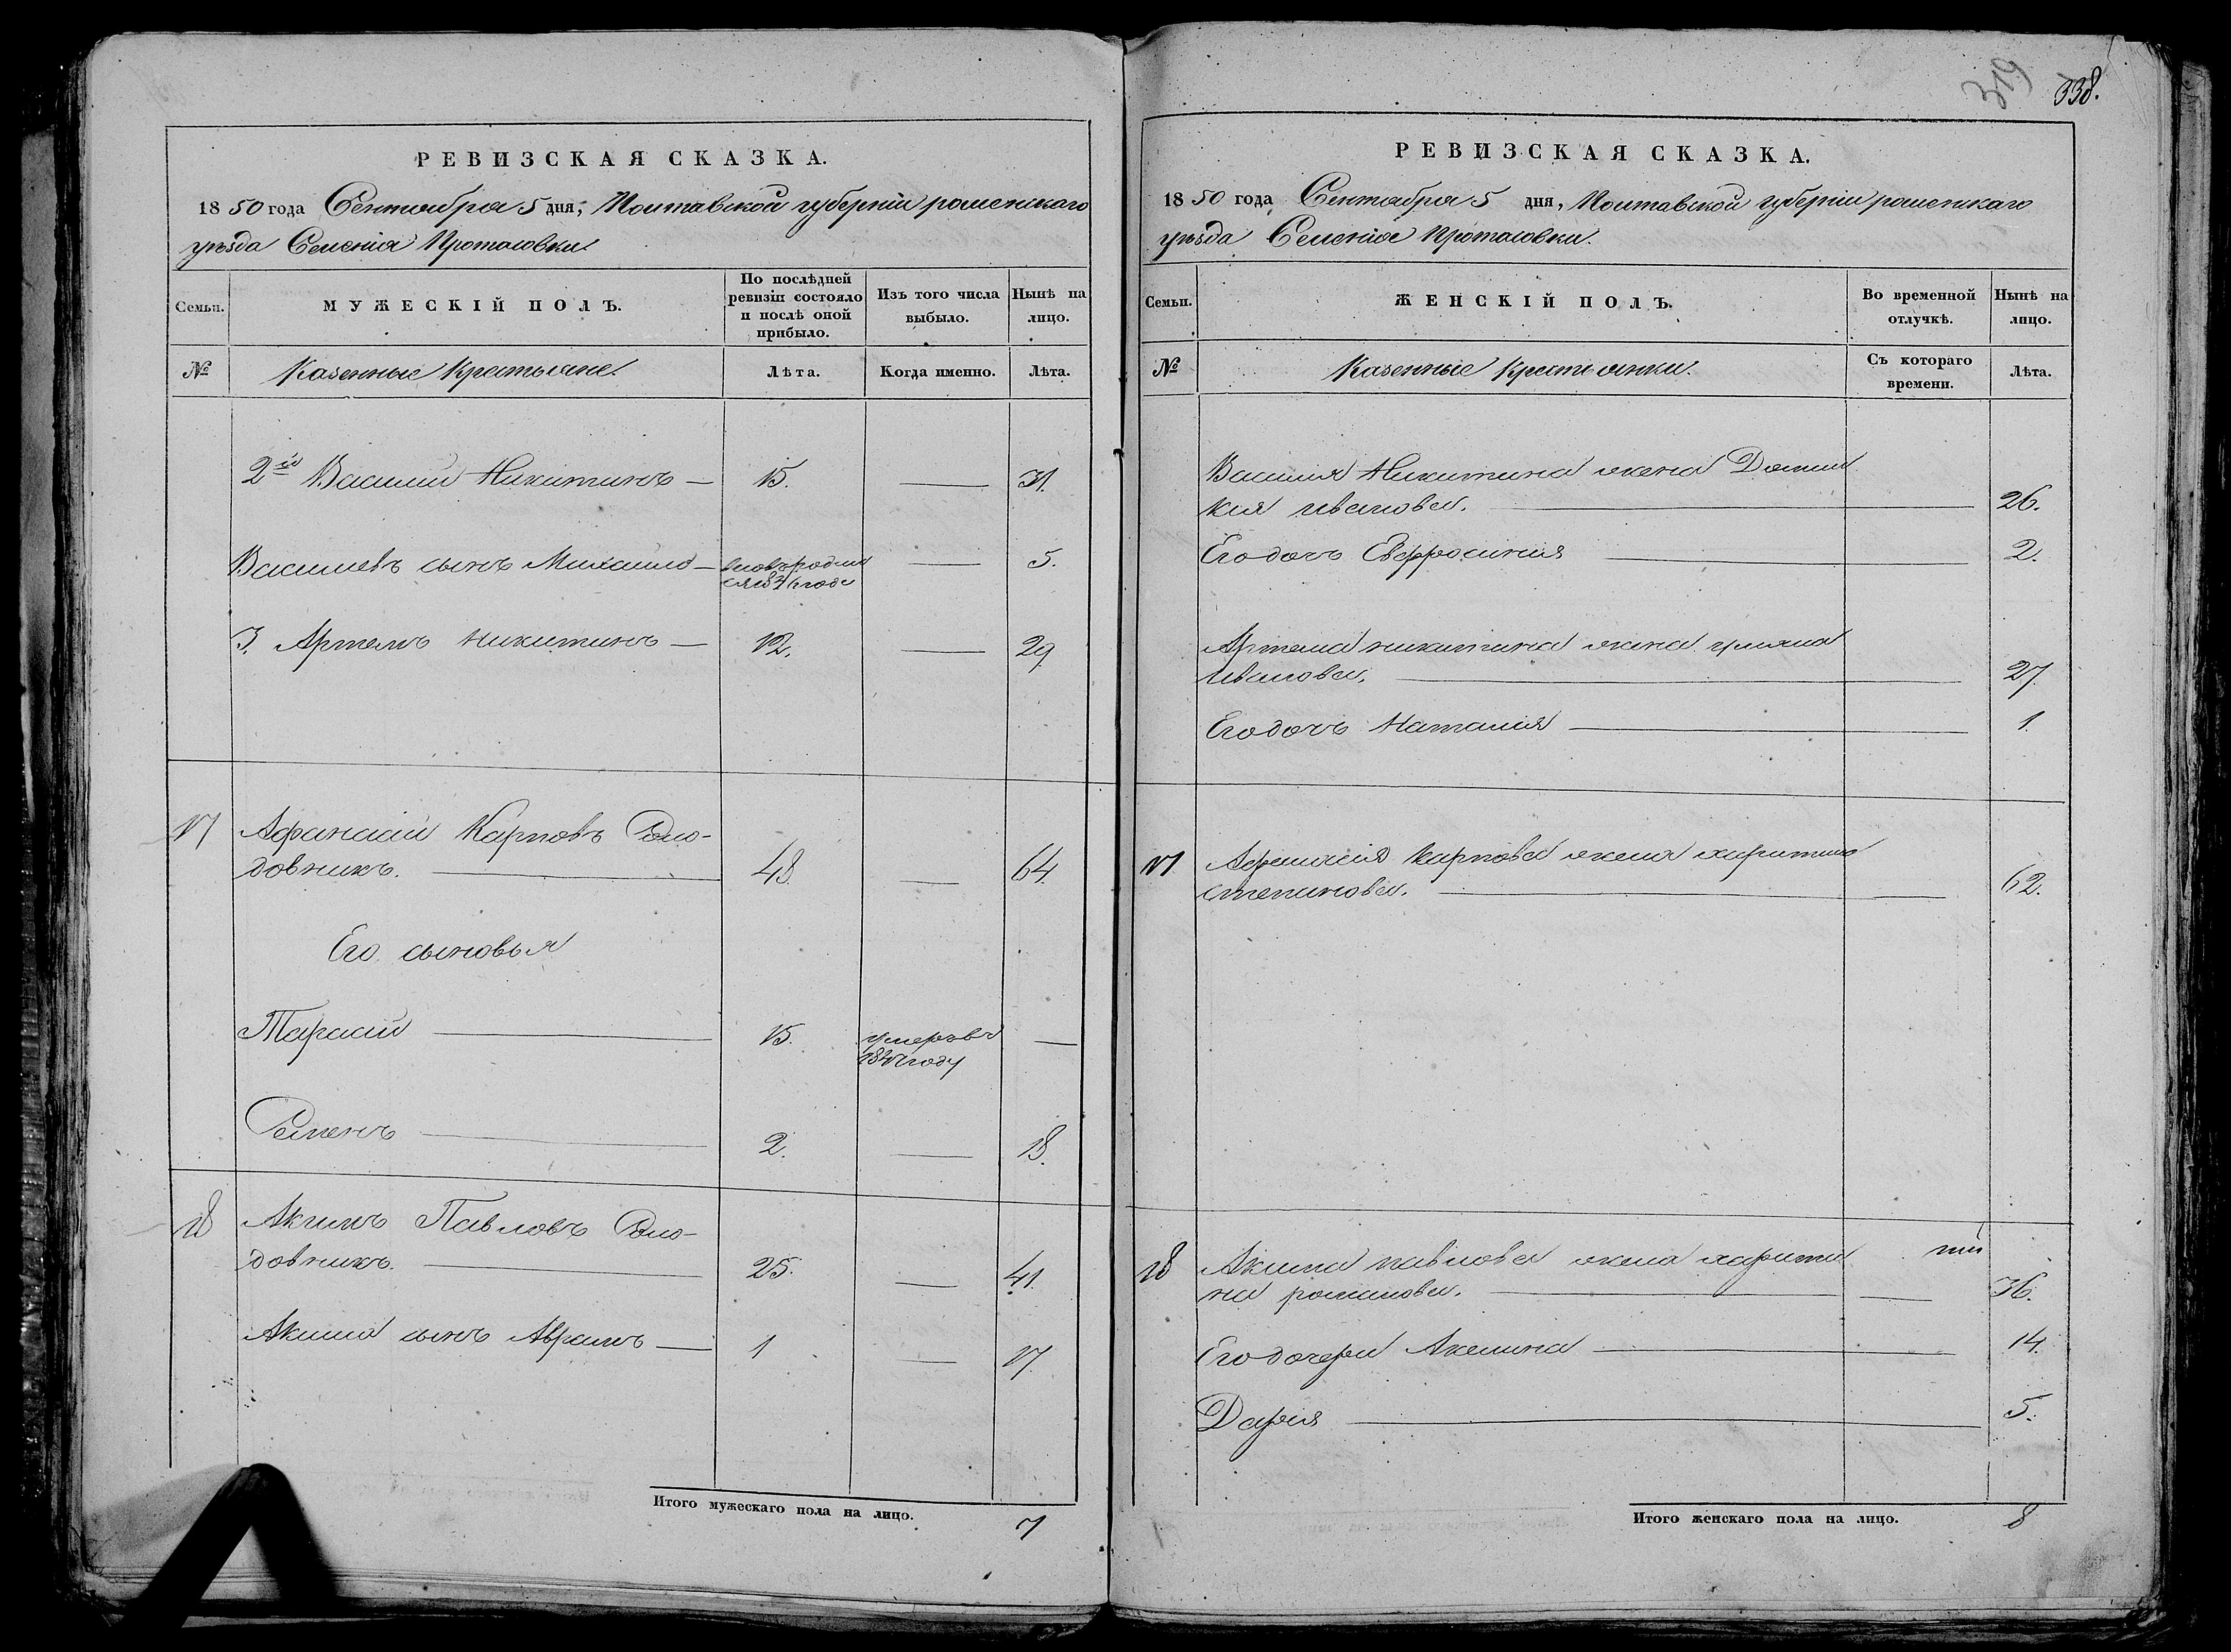 РЕВИЗСКАЯ СКАЗКА.
1850 года Сентября 5 дня, Полтавской губерніи роменскаго
уѣзда Селенія Протасовки
Семьи.
МУЖЕСКІЙ ПОЛЪ.
По послѣдней ревизіи состояло и послѣ оной прибыло.
Изъ того числа выбыло.
Нынѣ на лицо.
№
Казенные Крестьяне.
Лѣта.
Когда именно.
Лѣта.
2й Василій Никитинъ — 15. — 31.
Васильевъ сынъ Михайло — — 5.
3. Артемъ Никитинъ — 12. — 29
17 Афанасій Карповъ
довникъ. — 48. — 64.
Его сыновья
Тарасій — 15. умеръ въ —
году
Семенъ — 2. — 18.
18 Акимъ Павловъ
довникъ. — 25. — 41.
Акима сынъ Аврамъ — 1 — 17.
Итого мужескаго пола на лицо. 7
319 338.
РЕВИЗСКАЯ СКАЗКА.
1850 года Сентября 5 дня, Полтавской губерніи роменскаго
уѣзда Селенія Протасовки.
Семьи.
ЖЕНСКІЙ ПОЛЪ.
Во временной отлучкѣ.
Нынѣ на лицо.
№
Казенные Крестьянки.
Съ котораго времени.
Лѣта.
Василія Никитина жена Домни
кія иванова. — 26.
Его дочь Евфросинія — 2.
Артема никитина жена уліяна
иванова. — 27.
Его дочь Наталія — 1.
17 Афанасія карпова жена харитина
степанова. — 62.
18 Акима павлова жена харити
на романова. — 36.
Его дочери Акилина — 14.
Дарія — 5.
Итого женскаго пола на лицо. 8